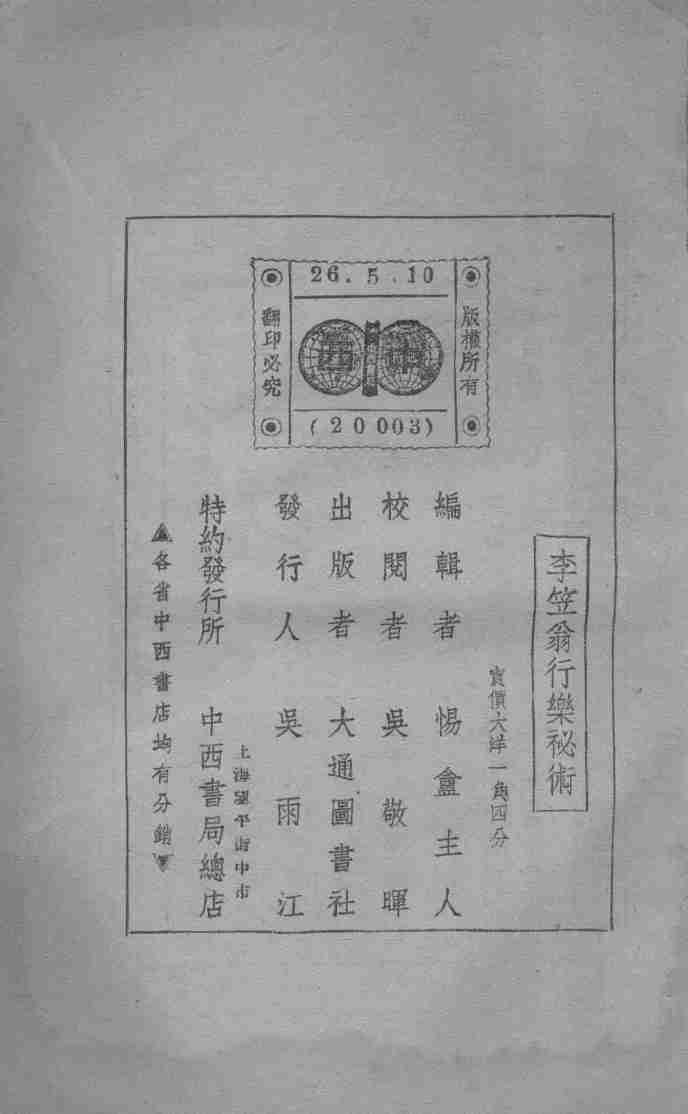 李笠翁行樂祕術
實價大洋一角四分
編輯者 惕盦主人
校閱者 吳敬暉
出版者 大通圖書社
發行人 吳雨江
特約發行所 中西書局總店
上海望平街中市
▲各省中西書店均有分銷▼
版權所有
26.5.10
(20003)
翻印必究